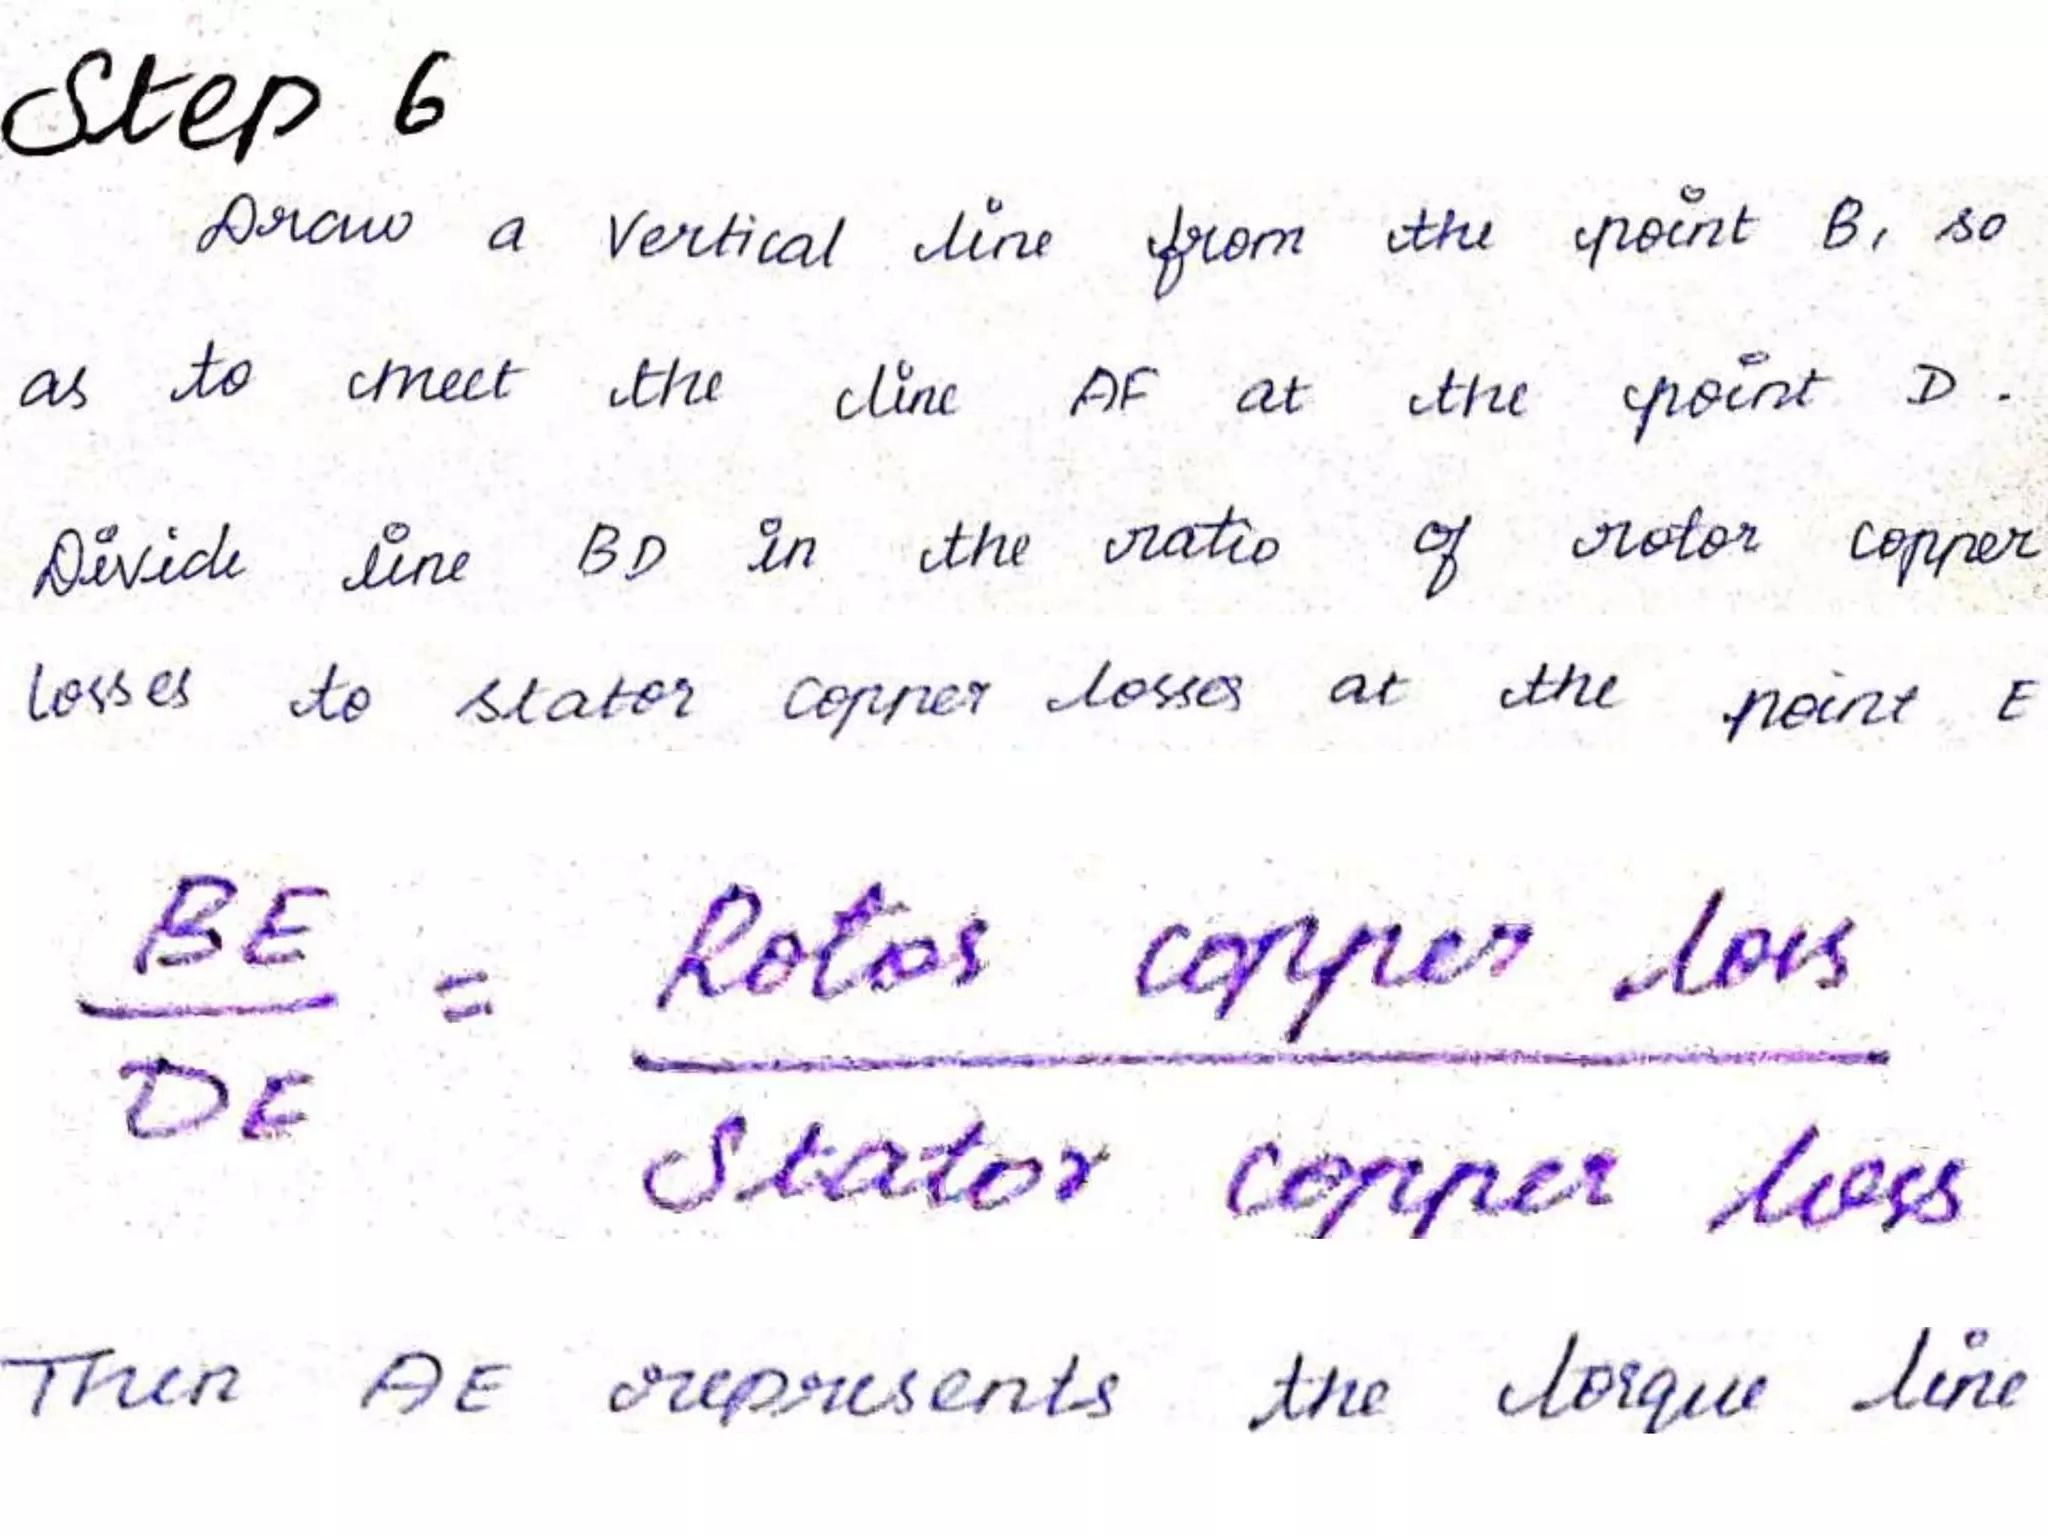 Step 6
Draw a vertical line from the point B, so
as to meet the line AF at the point D.
Divide line BD in the ratio of rotor copper
losses to stator copper losses at the point E
BE/DE = Rotor copper loss / Stator copper loss
Then AE represents the torque line